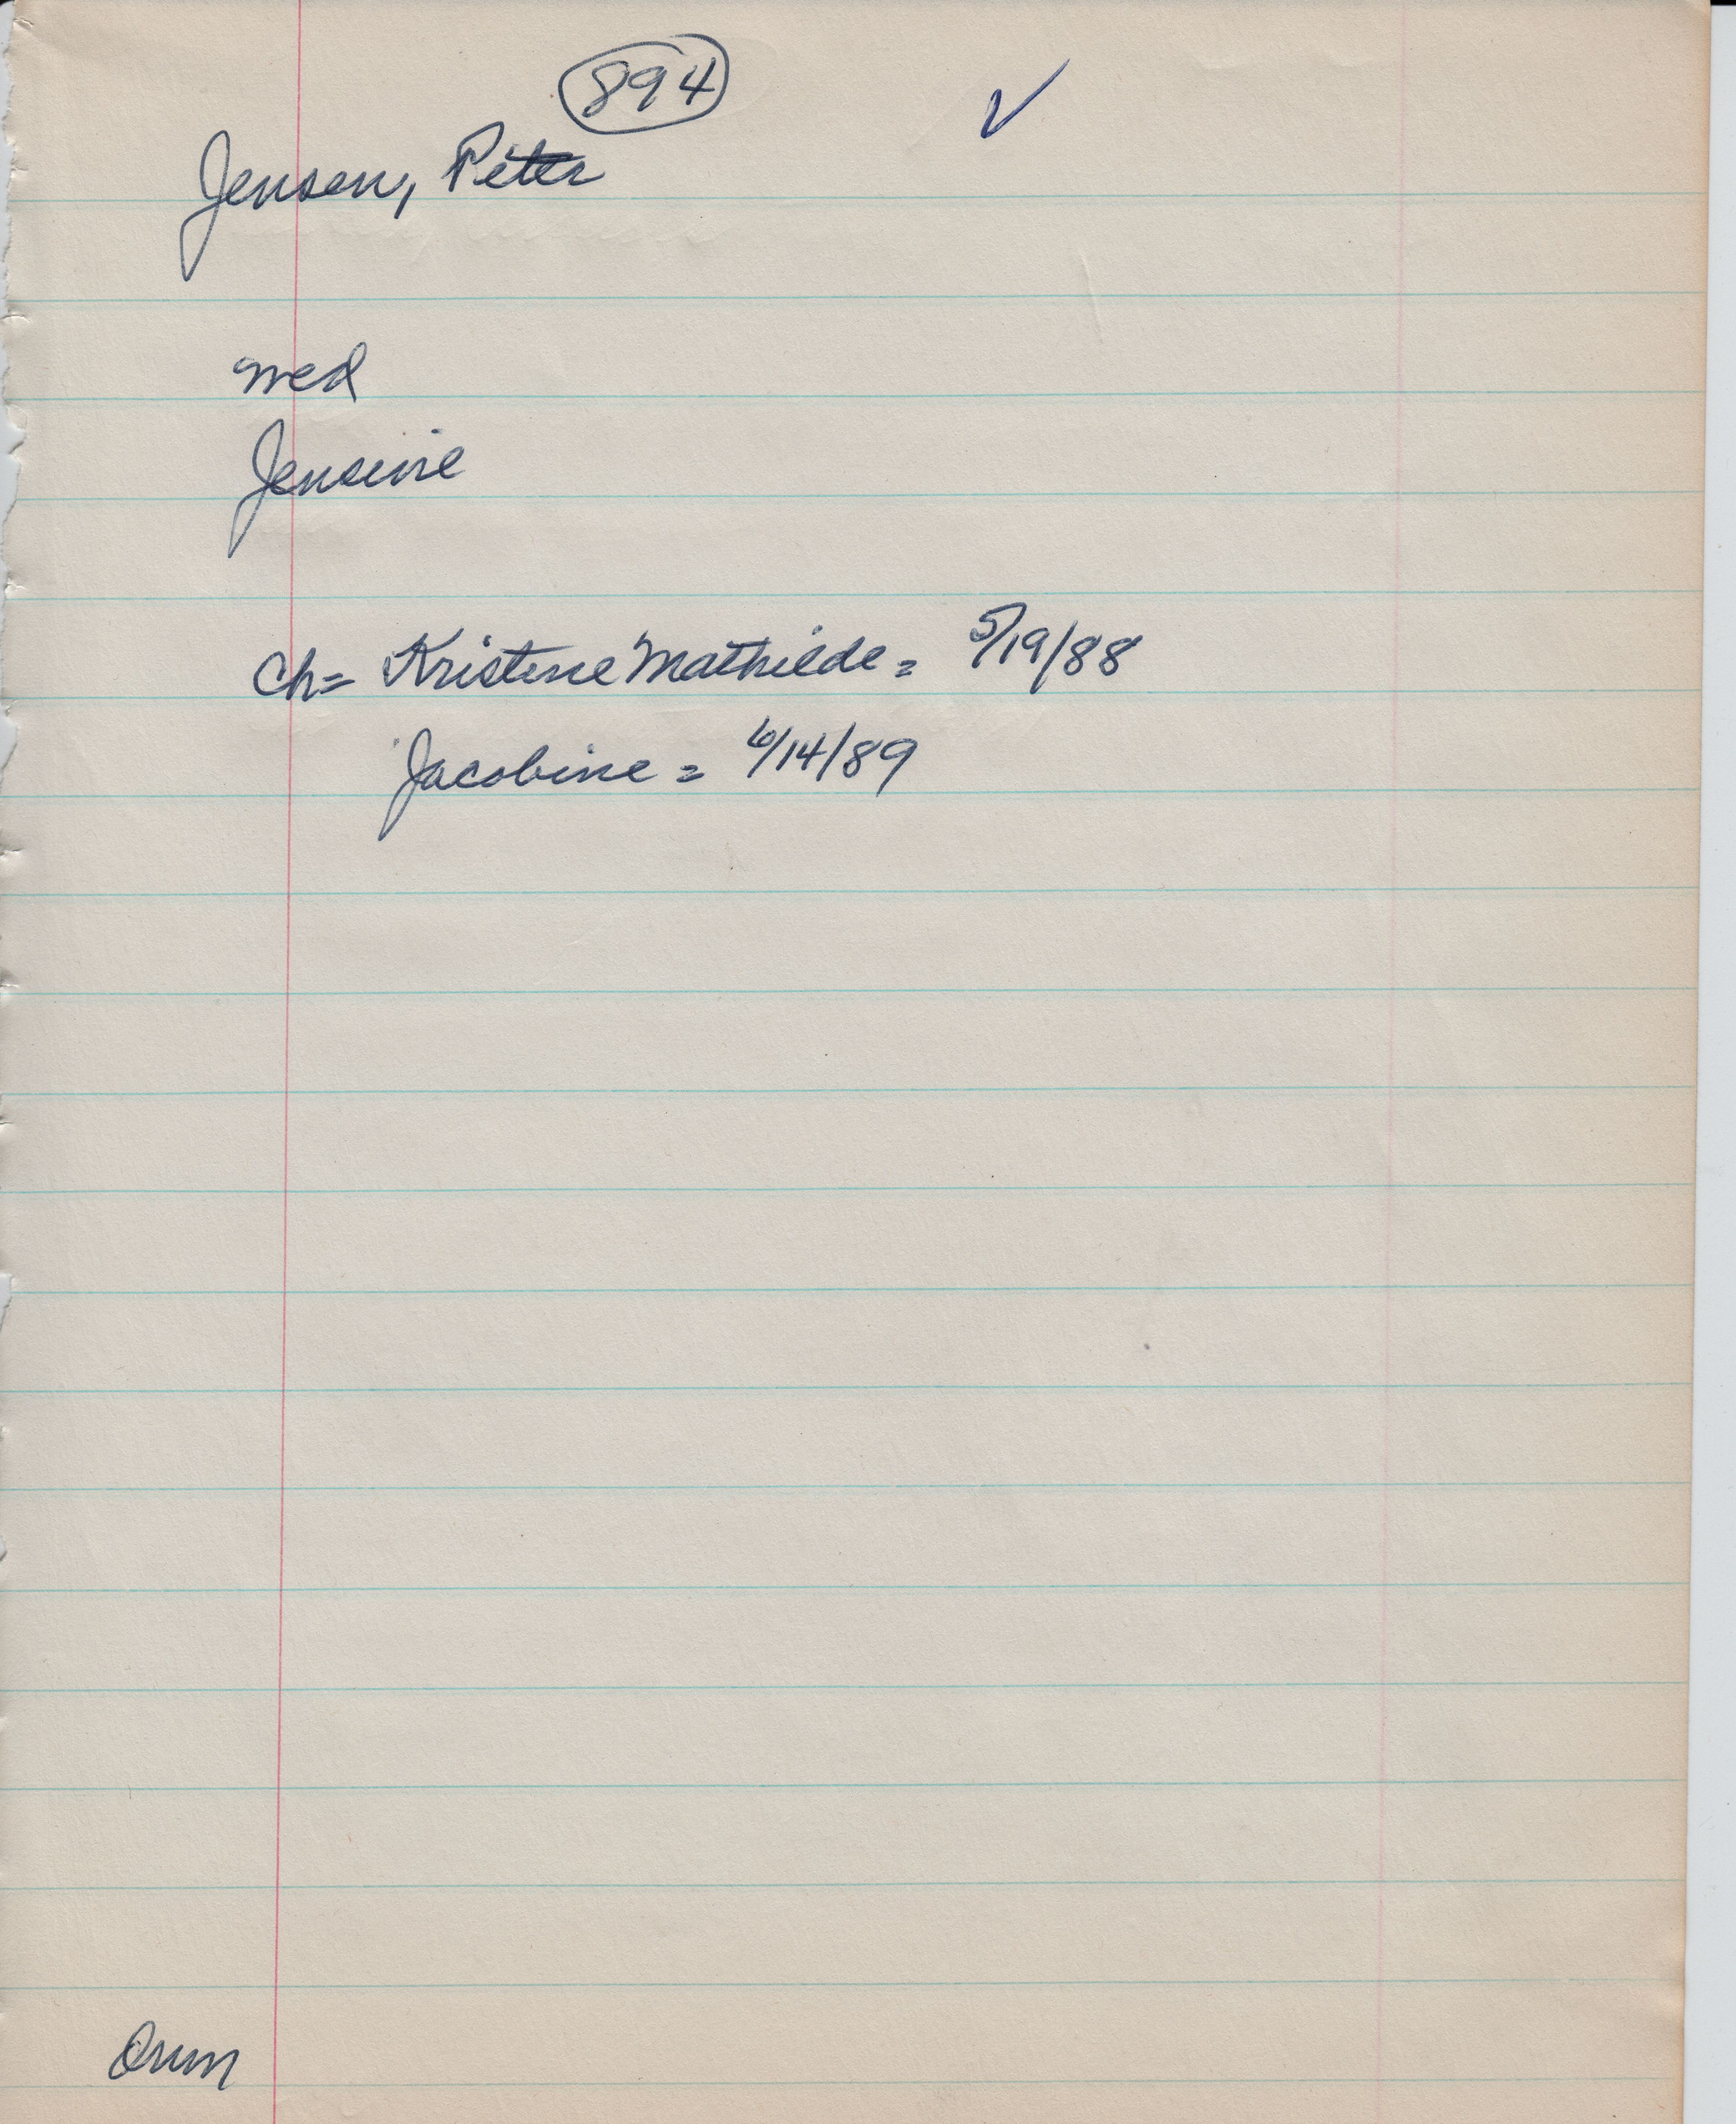 894
✓
Jensen, Peter
med
Jensine
Ch= Kristine Mathilde = 5/19/88
Jacobine = 6/14/89
Orum